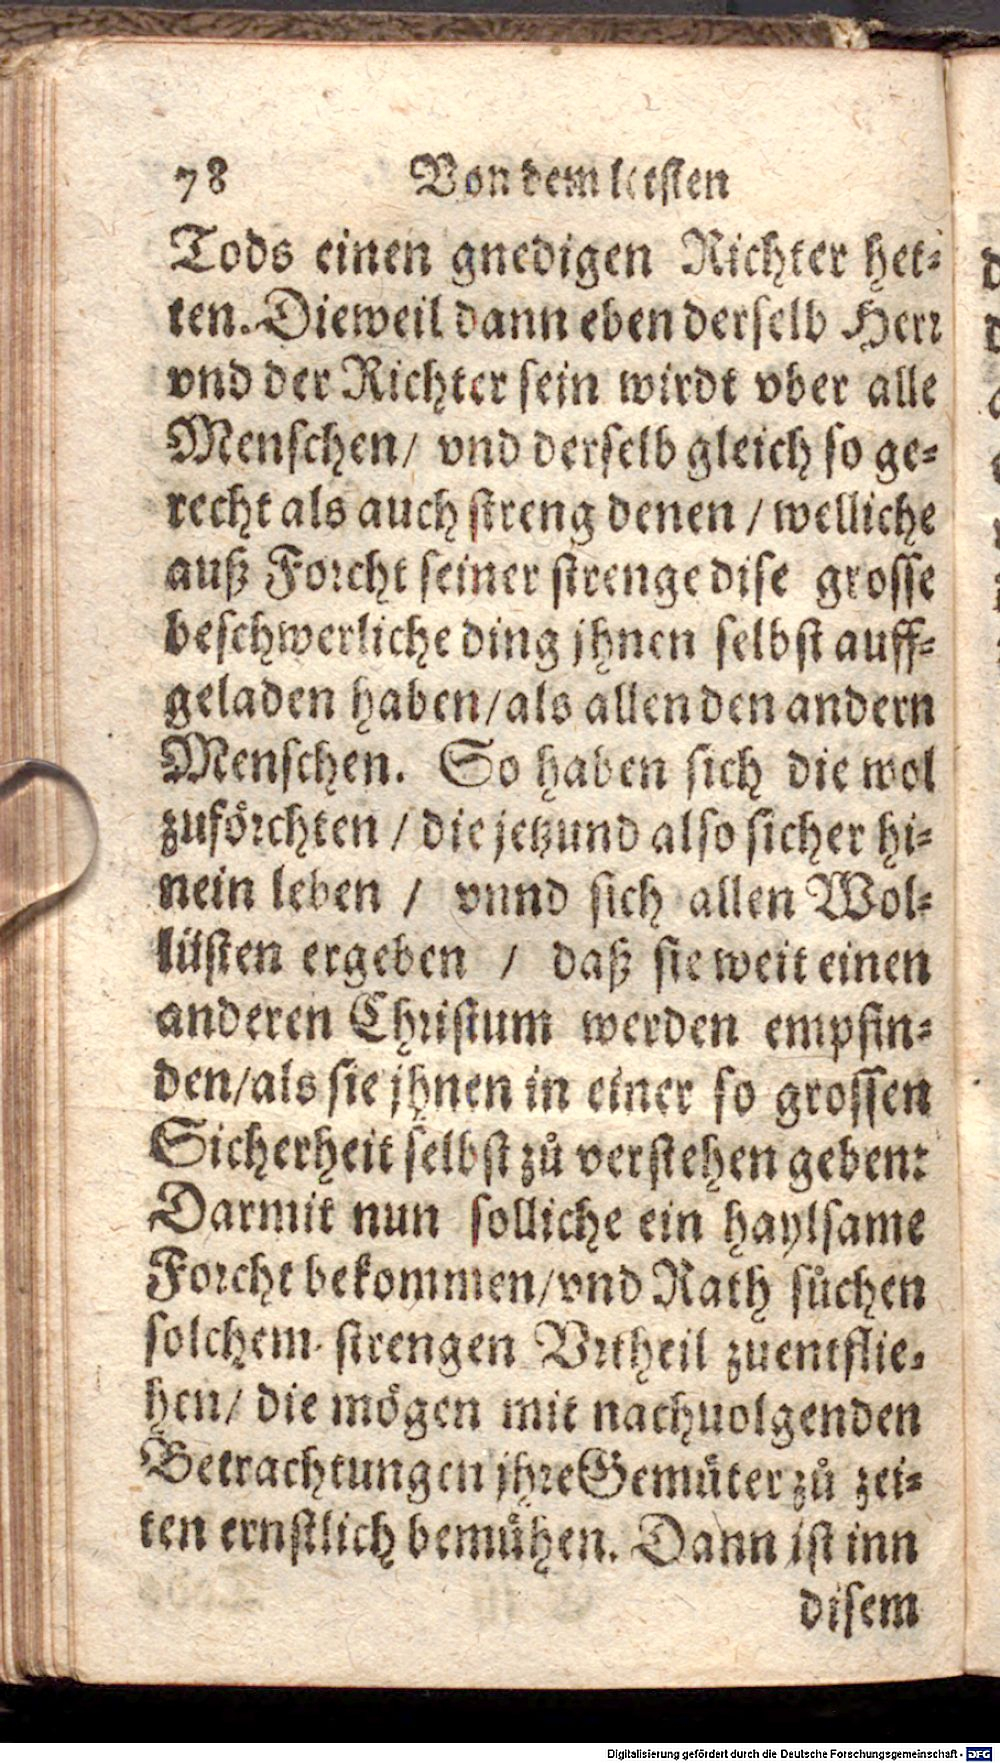 78 Von dem letsten
Tods einen gnedigen Richter het⸗
ten. Dieweil dann eben derselb Herr
vnd der Richter sein wirdt vber alle
Menschen/ vnd derselb gleich so ge⸗
recht als auch streng denen / welliche
auß Forcht seiner strenge dise grosse
beschwerliche ding jhnen selbst auff⸗
geladen haben/als allen den andern
Menschen. So haben sich die wol
zuförchten / die jetzund also sicher hi⸗
nein leben / vnnd sich allen Wol⸗
lüsten ergeben / daß sie weit einen
anderen Christum werden empfin⸗
den/als sie jhnen in einer so grossen
Sicherheit selbst zů verstehen geben:
Darmit nun solliche ein haylsame
Forcht bekommen/vnd Rath sůchen
solchem strengen Vrtheil zuentflie⸗
hen/ die mögen mit nachuolgenden
Betrachtungen jhre Gemüter zů zei⸗
ten ernstlich bemühen. Dann ist inn
disem
Digitalisierung gefördert durch die Deutsche Forschungsgemeinschaft - DFG